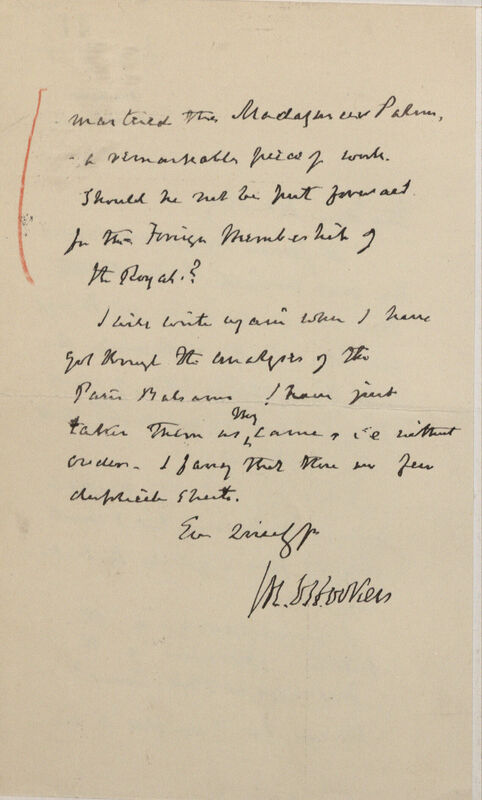 mastered the Madagascar Palms,
- a remarkable piece of work.
Should he not be put forward
for the Foreign Membership of
the Royal.?
I will write again when I have
got through the analyses of the
Paris Balsams I have just
taken them as they came, i.e without
order. I fancy that there are few
duplicate sheets.
Ever sincerely
J.D. Hooker